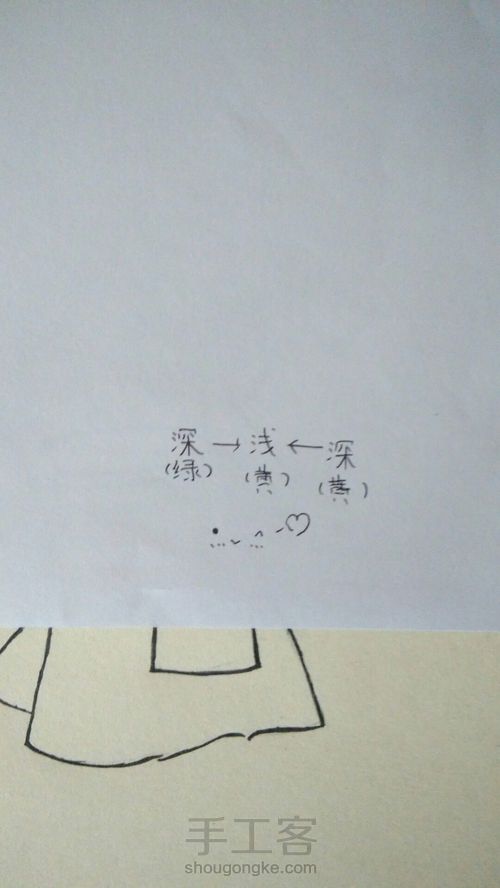 深→浅←深
(绿) (黄) (黄)
手工客
shougongke.com